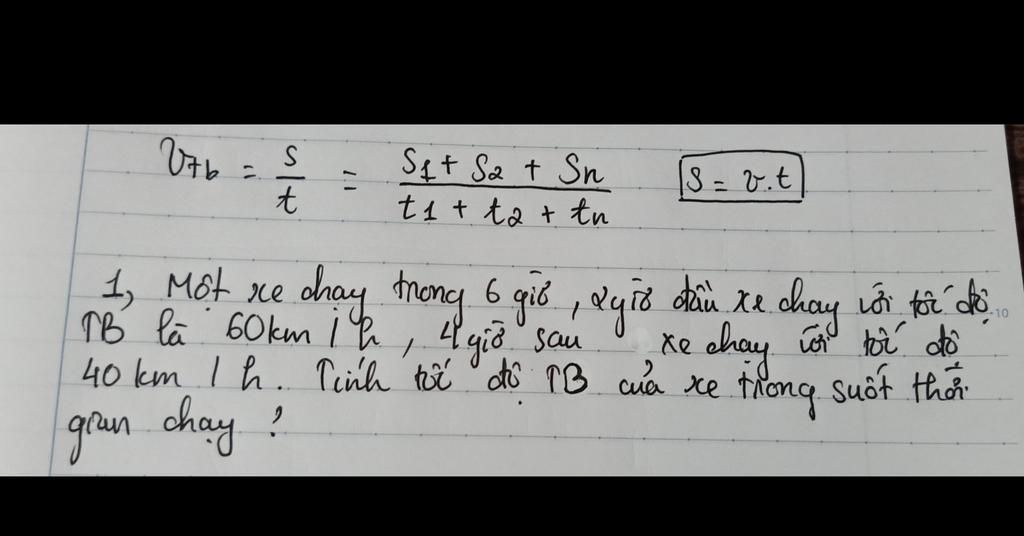 Vtb = s/t = S1 + S2 + Sn / t1 + t2 + tn S = v.t
1, Một xe chạy trong 6 giờ, 2 giờ đầu xe chạy với tốc độ
TB là 60km/h, 4 giờ sau xe chạy với tốc độ
40 km/h. Tính tốc độ TB của xe trong suốt thời
gian chạy?
10